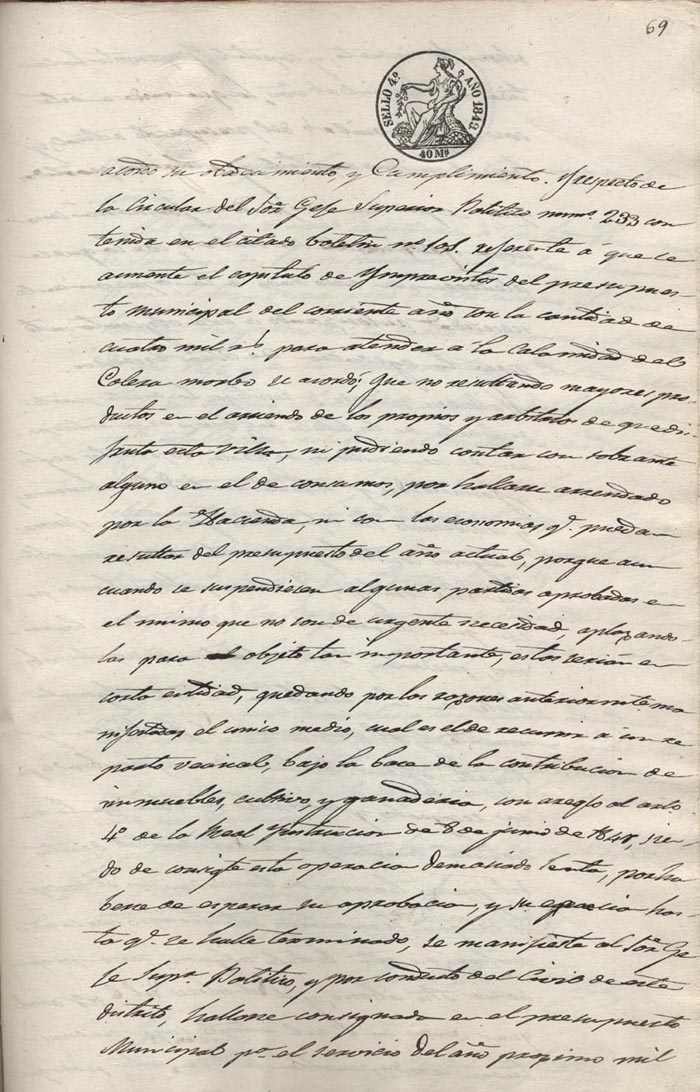 69
SELLO 4º AÑO 1849.
40 Ms
acordó su obedecimiento, y Cumplimiento. Y respeto de
la Circular del Sor. Gefe Superior Politico numº. 233 con
tenida en el citado boletin nº 101. referente á que se
aumente el capitulo de Ymprevistos del presupues-
to municipal del corriente año con la cantidad de
cuatro mil rs. para atender á la Calamidad del
Colera morbo se acordó; Que no resultando mayores pro-
ductos en el arriendo de los propios y arbitrios de que di-
fruta esta Villa, ni pudiendo contar con sobrante
alguno en el de consumos, por hallarse arrendado
por la Hacienda, ni con las economias q. puedan
resultar del presupuesto del año actual, porque aun
cuando se suspendiesen algunas partidas aprobadas en
el mismo que no son de urgente necesidad, aplazando
las para el objeto tan importante, estos serian en
corta entidad, quedando por las razones anteriormte. ma
nifestadas el unico medio, cual es el de recurrir á un re
parto vecinal, bajo la base de la contribucion de
inmuebles, cultivo y ganaderia, con areglo al arto
4º de la Real Ynstruccion de 8 de junio de sien-
do de consigte. esta operacion demasiado lenta, por ha
berse de esperar su aprobacion, y su has
ta q. se halle terminado, se manifieste al Sor. Ge
fe Supr. Politico, y por conducto del Civil de este
distrito, hallarse consignado en el presupuesto
Municipal pa. el servicio del año proximo mil